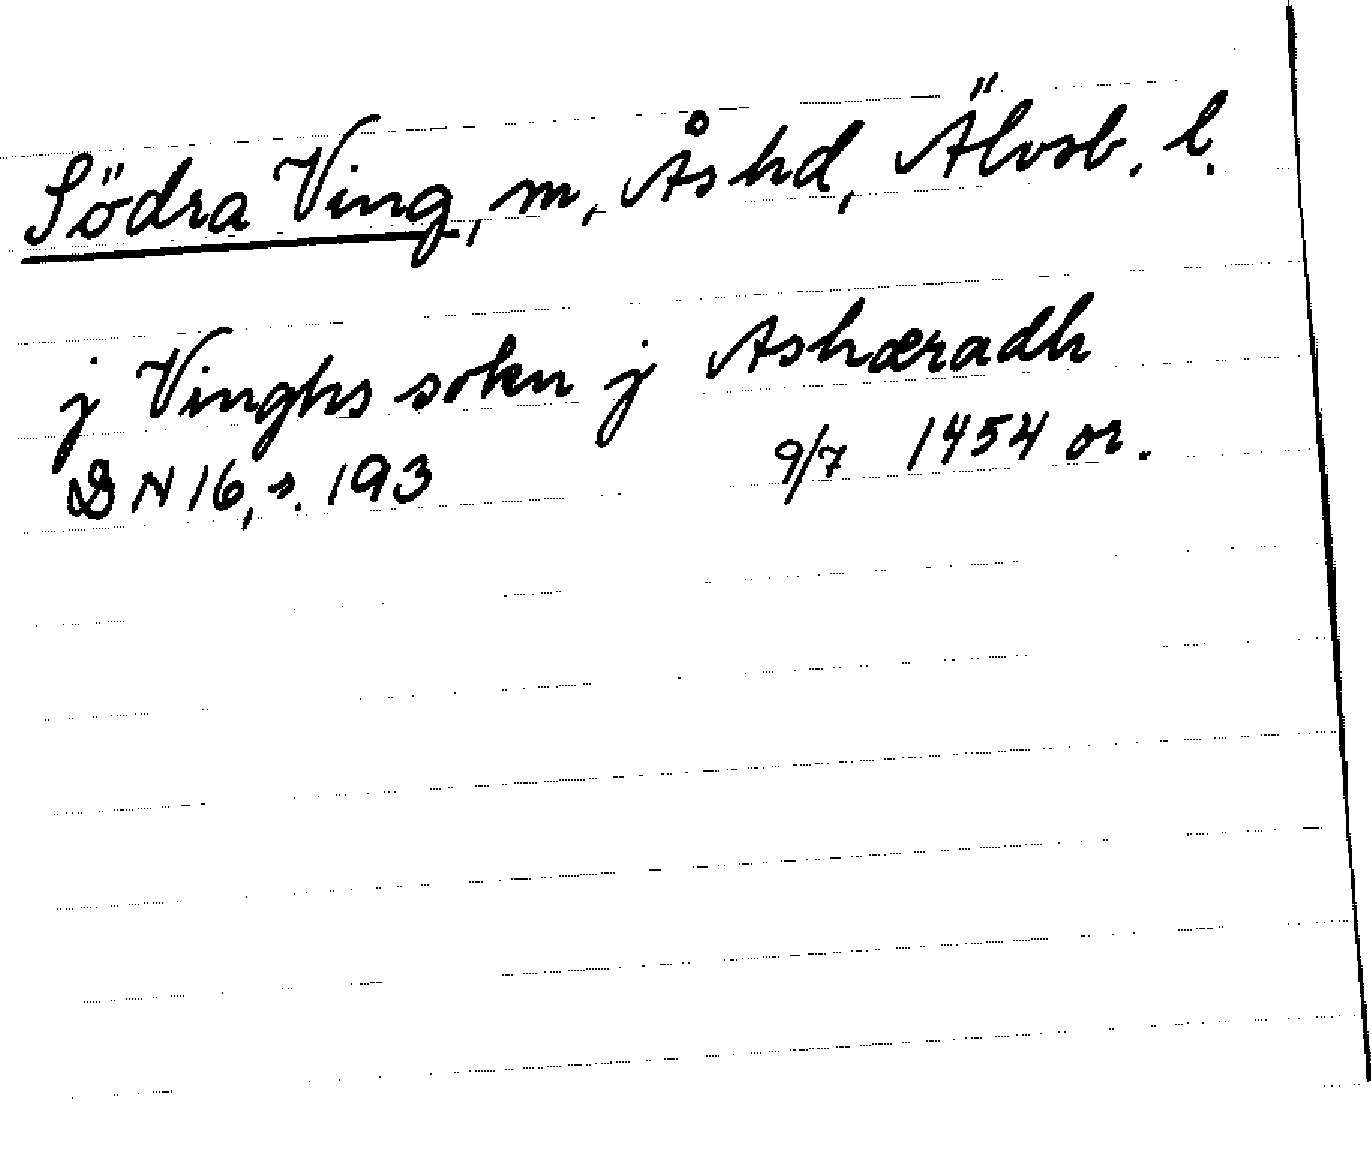 Södra Ving, m, Ås hd, Älvsb. l.
j Vinghs sokn j Ashæradh
DN 16, s. 193 9/7 1454 or.